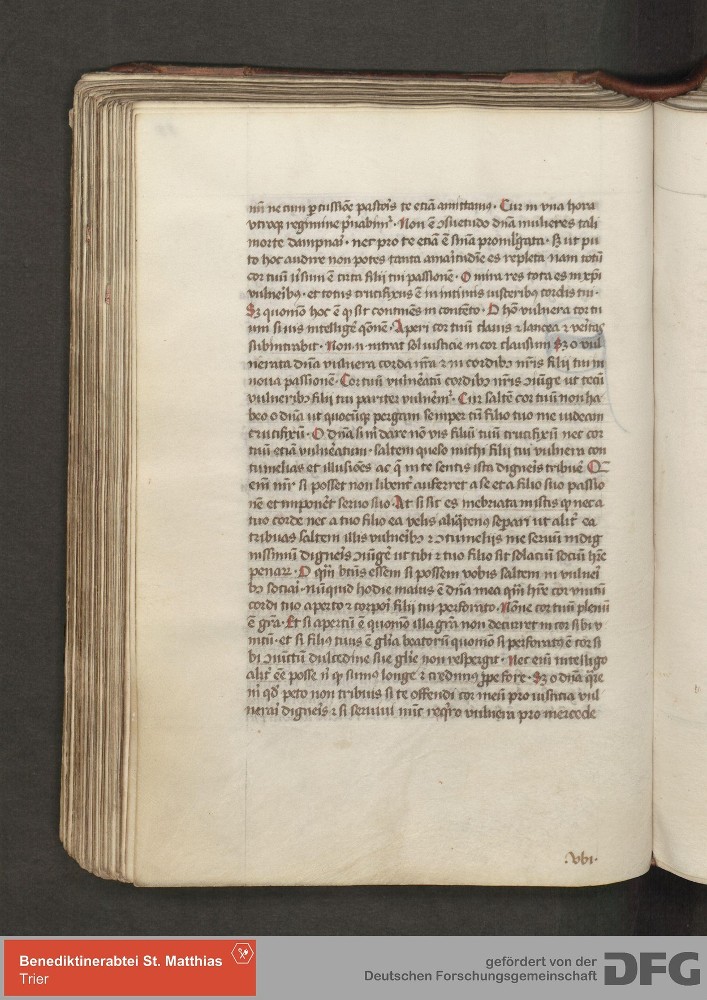 nūi ne cum ꝑcussiōe pastoris te etiā amittamꝰ. Cur in vna hora
vtroqꝫ regimine p̄uabimʳ. Non ē ɔsuetudo dn̄a mulieres tali
morte dampnai. nec pro te etiā ē sn̄ia promulgata. Sꝫ ut pu
to hoc audire non potes tanta amaritudīe es repleta nam totū
cor tuū ē circa filij tui passionē. O mira res tota es in xp̄i
vulneribꝰ. et totus crucifixus ē in intimis visceribꝰ cordis tui.
Sꝫ quomō hoc ē ꝙ sit continēs in contēto. O hō vulnera cor tu
um si vis intelligē q̄onē. Aperi cor tuū clauis ⁊ lancea ⁊ veritas
subintrabit. Non .n. intrat sol iusticie in cor clausum Sꝫ o vul
nerata dn̄a vulnera corda nr̄a ⁊ in cordibꝫ nr̄is filij tui in
noua passionē. Cor tuū vulneātū cordibꝫ nr̄is ɔiūge ut tecū
vulneribꝫ filij tui pariter vulnēmʳ. Cur saltē cor tuū non ha
beo o dn̄a ut quocūqꝫ pergam semper cū filio tuo me videam
crucifixū. O dn̄a si m̄ dare nō vis filiū tuū crucifixū nec cor
tuū etiā vulneratum. saltem queso michi filij tui vulnera con
tumelias et illusiōes ac q̄ in te sentis ista digneris tribuē
em̄ mr̄ si posset non libentʳ auferret a se et a filio suo passio
nē et imponeret seruo suo. At si sic es inebriata in istis ꝙ nec a
tuo corde nec a tuo filio ea velis aliqͣtenus separi ut alitʳ ea
tribuas saltem illis vulneribꝫ ⁊ ɔtumelijs me seruū indig
nissimū digneris ɔiūgē ut tibi ⁊ tuo filio sit solaciū sociū hr̄e
pene. O qm̄ btūs essem si possem vobis saltem in vulneri
bꝫ sociai. nūquid hodie maius ē dn̄a mea qm̄ hr̄e cor vnitū
cordi tuo aperto ⁊ corpori filij tui perforato. Nōne cor tuū plenū
ē gr̄a. Et si apertū ē quomō illa gr̄a non decurret in cor sibi v
nitū. et si filiꝰ tuus ē glīa beatorū quomō si perforatꝰ ē cor si
bi ɔiūctū dulcedine sue glīe non respergit. Nec em̄ intelligo
alitʳ ēē posse sumus longe ⁊ credimꝰ ꝓpe fore. Sꝫ o dn̄a qͣre
m̄ qd̄ peto non tribuis si te offendi cor meū pro iusticia vul
nerai digneris ⁊ si seruiui nūc reqͥro vulnera pro mercede
.vbi.
Benediktinerabtei St. Matthias
Trier
gefördert von der
Deutschen Forschungsgemeinschaft
DFG